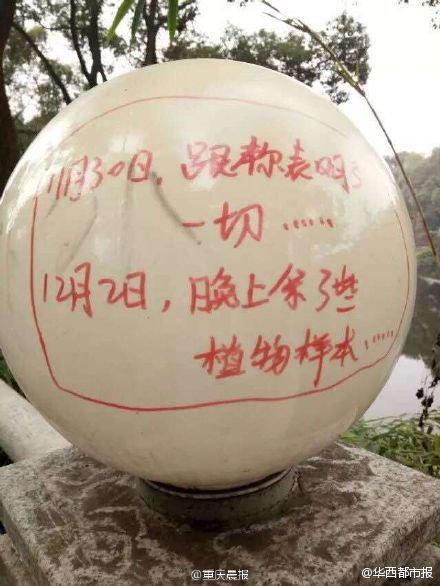 11月30日，跟你表明了
一切……
12月2日，晚上采了些
植物样本……
@重庆晨报
@华西都市报